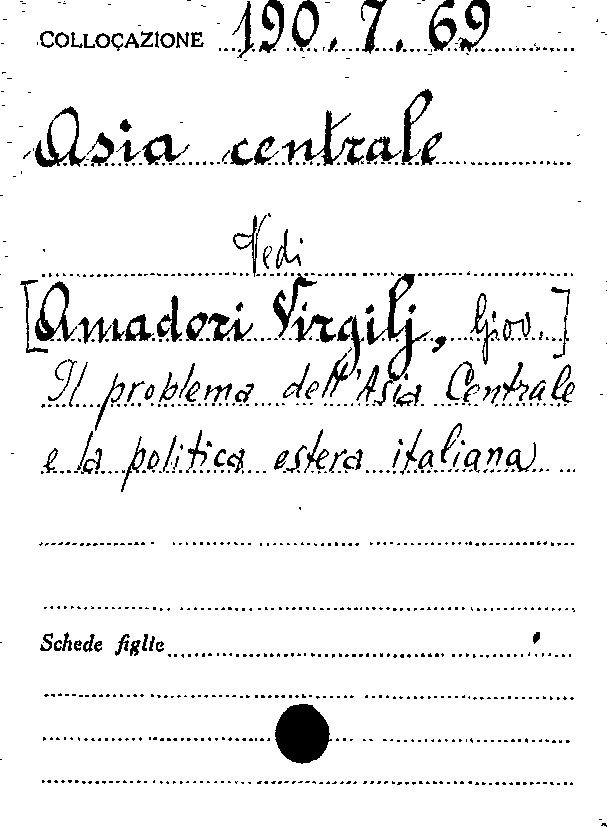 COLLOCAZIONE 190.7.69
Asia centrale
Vedi
[Amadori Virgilj, Giov.]
Il problema dell'Asia Centrale
e la politica estera italiana
Schede figlie